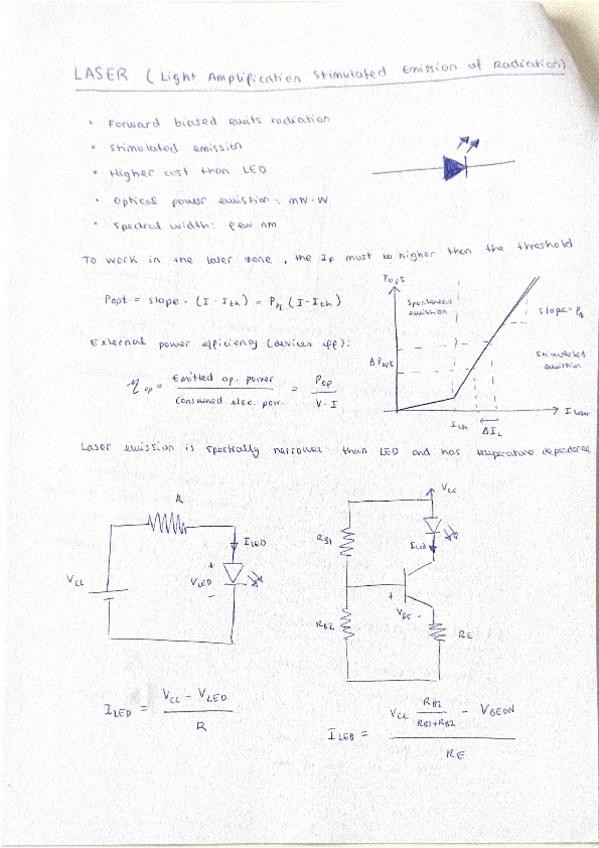 LASER (Light Amplification Stimulated Emission of Radiation)
• Forward biased emits radiation
• Stimulated emission
• Higher cost than LED
• Optical power emission: mW-W
• Spectral width: few nm
To work in the laser zone, the IF must be higher than the threshold
Popt = slope · (I - Ith) = Pη (I - Ith)
Popt
Spontaneous
emission
slope = Pη
ΔPopt
Stimulated
emission
Ith
ΔIL
I laser
External power efficiency (devices eff):
ηop = Emitted op. power / Consumed elec. pow. = Pop / V·I
Laser emission is spectrally narrower than LED and has temperature dependence
R
ILED
VCC
VLED
+
-
VCC
RB1
ILED
RB2
+
VBE -
RE
ILED = VCC - VLED / R
ILED = VCC RB2 / RB1+RB2 - VBEON / RE